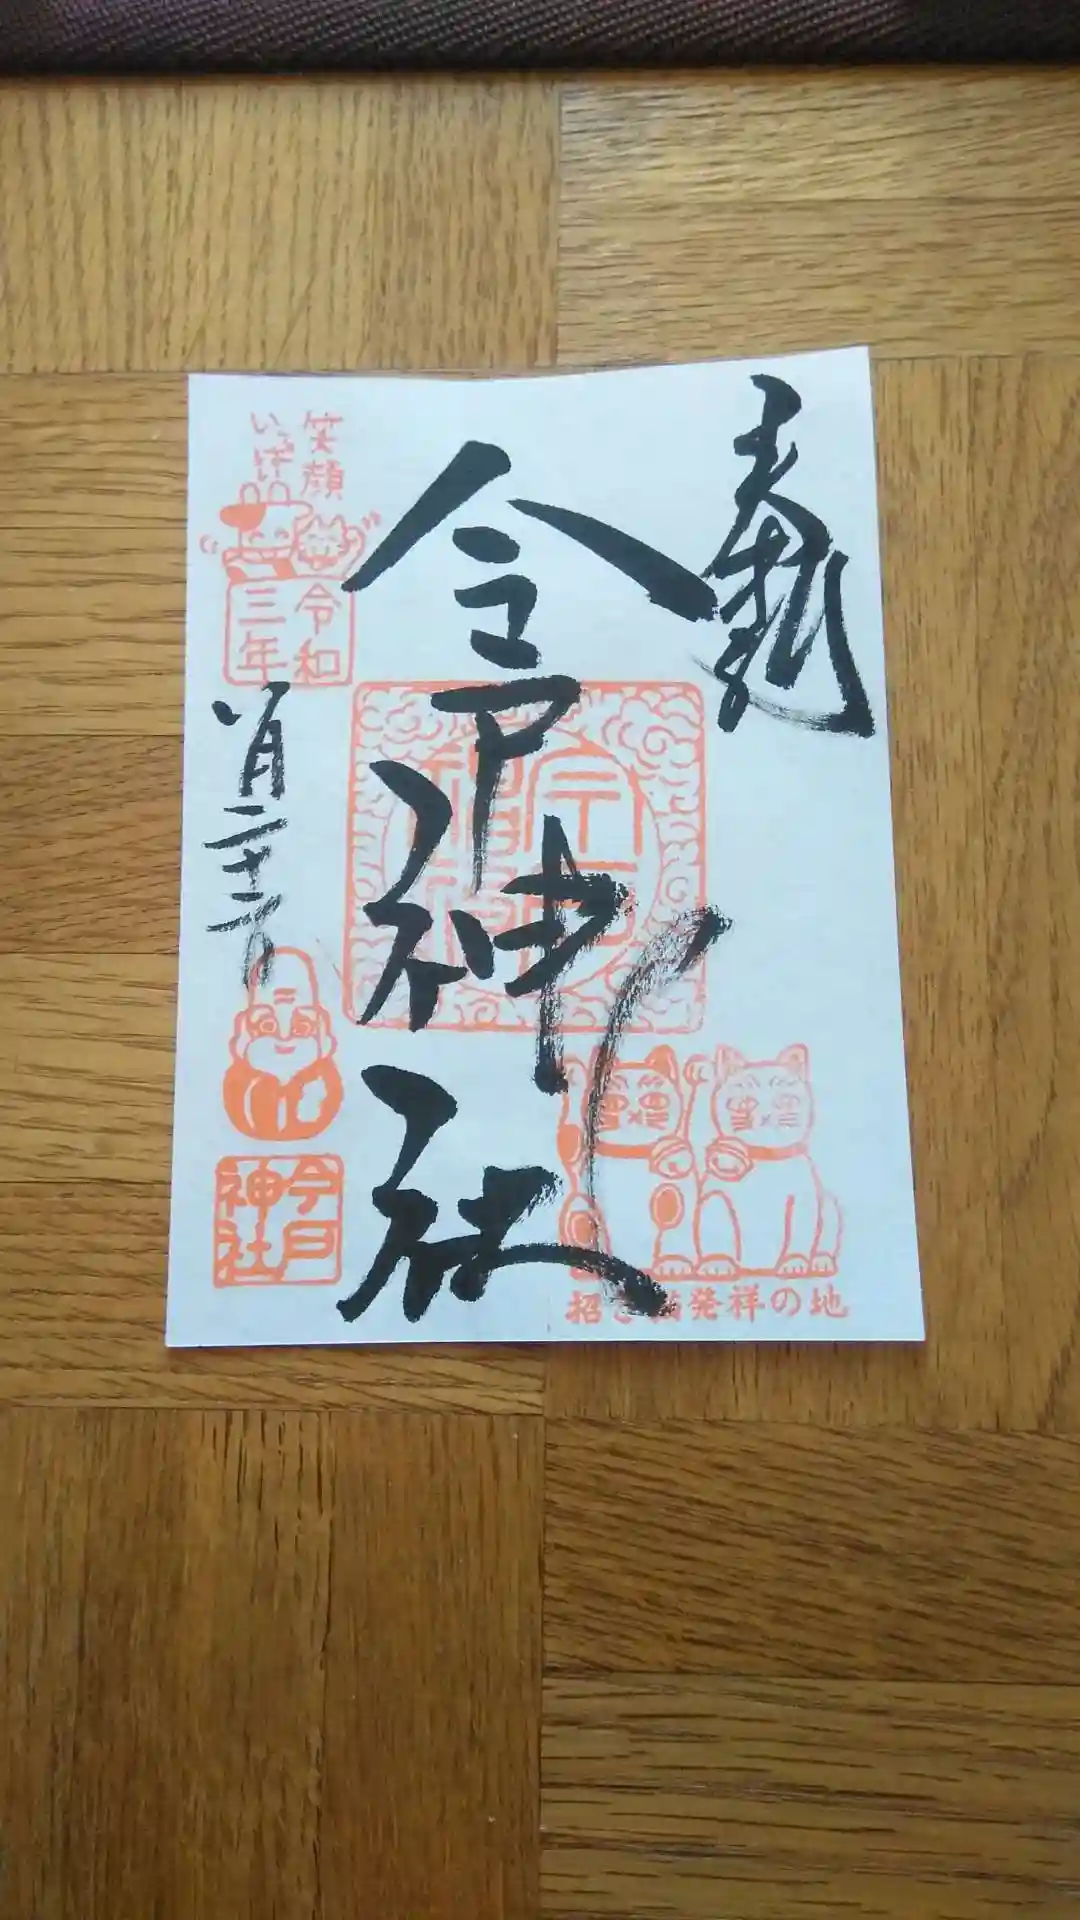 奉拝
今戸神社
招き猫発祥の地
笑顔
いっぱい
令和
三年
八月二十二日
今戸
神社